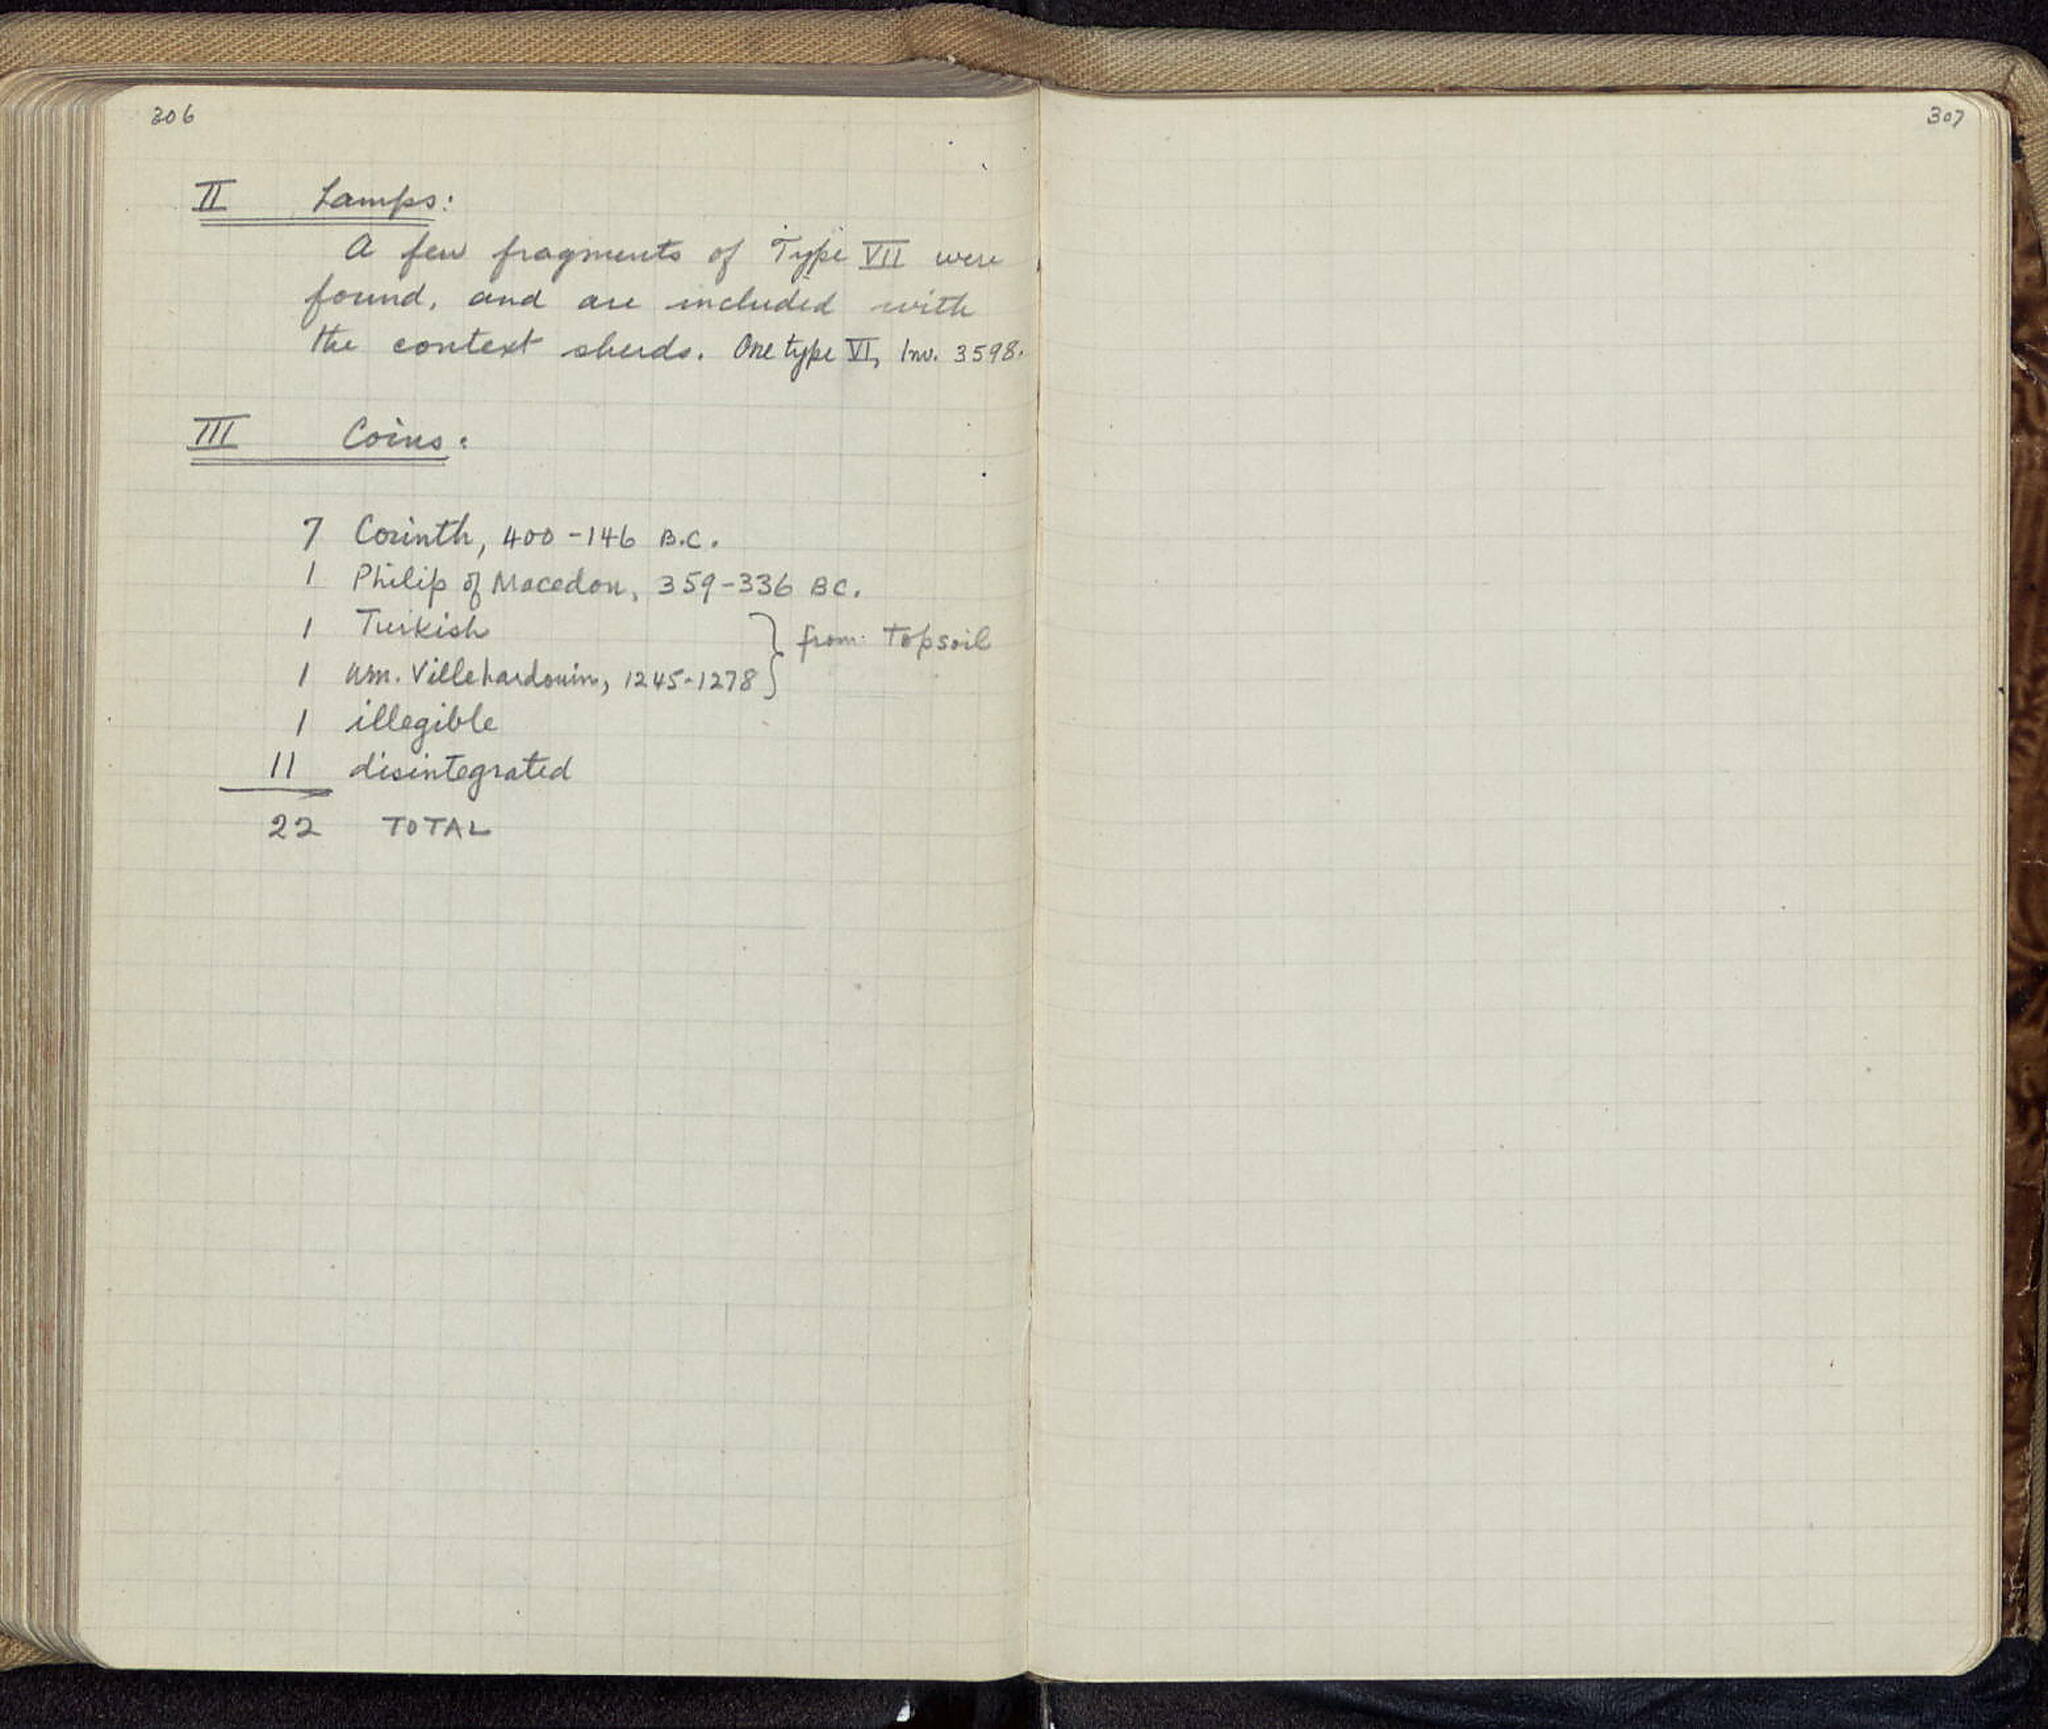 306
II Lamps:
A few fragments of Type VII were
found, and are included with
the context sherds. One type VI, Inv. 3598.
III Coins:
7 Corinth, 400-146 B.C.
1 Philip of Macedon, 359-336 BC.
1 Turkish
1 Wm. Villehardouin, 1245-1278 } from Topsoil
1 illegible
11 disintegrated
22 TOTAL
307